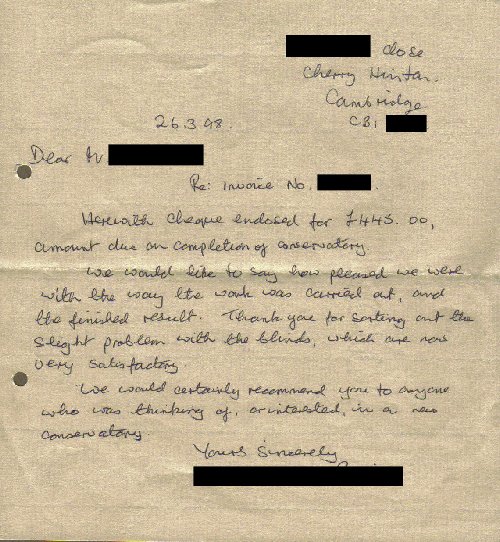 close
Cherry Hinton.
Cambridge
26.3.98.
CB1
Dear Mr
Re: Invoice No.
Herewith cheque enclosed for £445.00,
amount due on completion of conservatory.
We would like to say how pleased we were
with the way the work was carried out, and
the finished result. Thank you for sorting out the
slight problem with the blinds, which are now
very satisfactory.
We would certainly recommend you to anyone
who was thinking of, or interested, in a new
conservatory.
Yours Sincerely